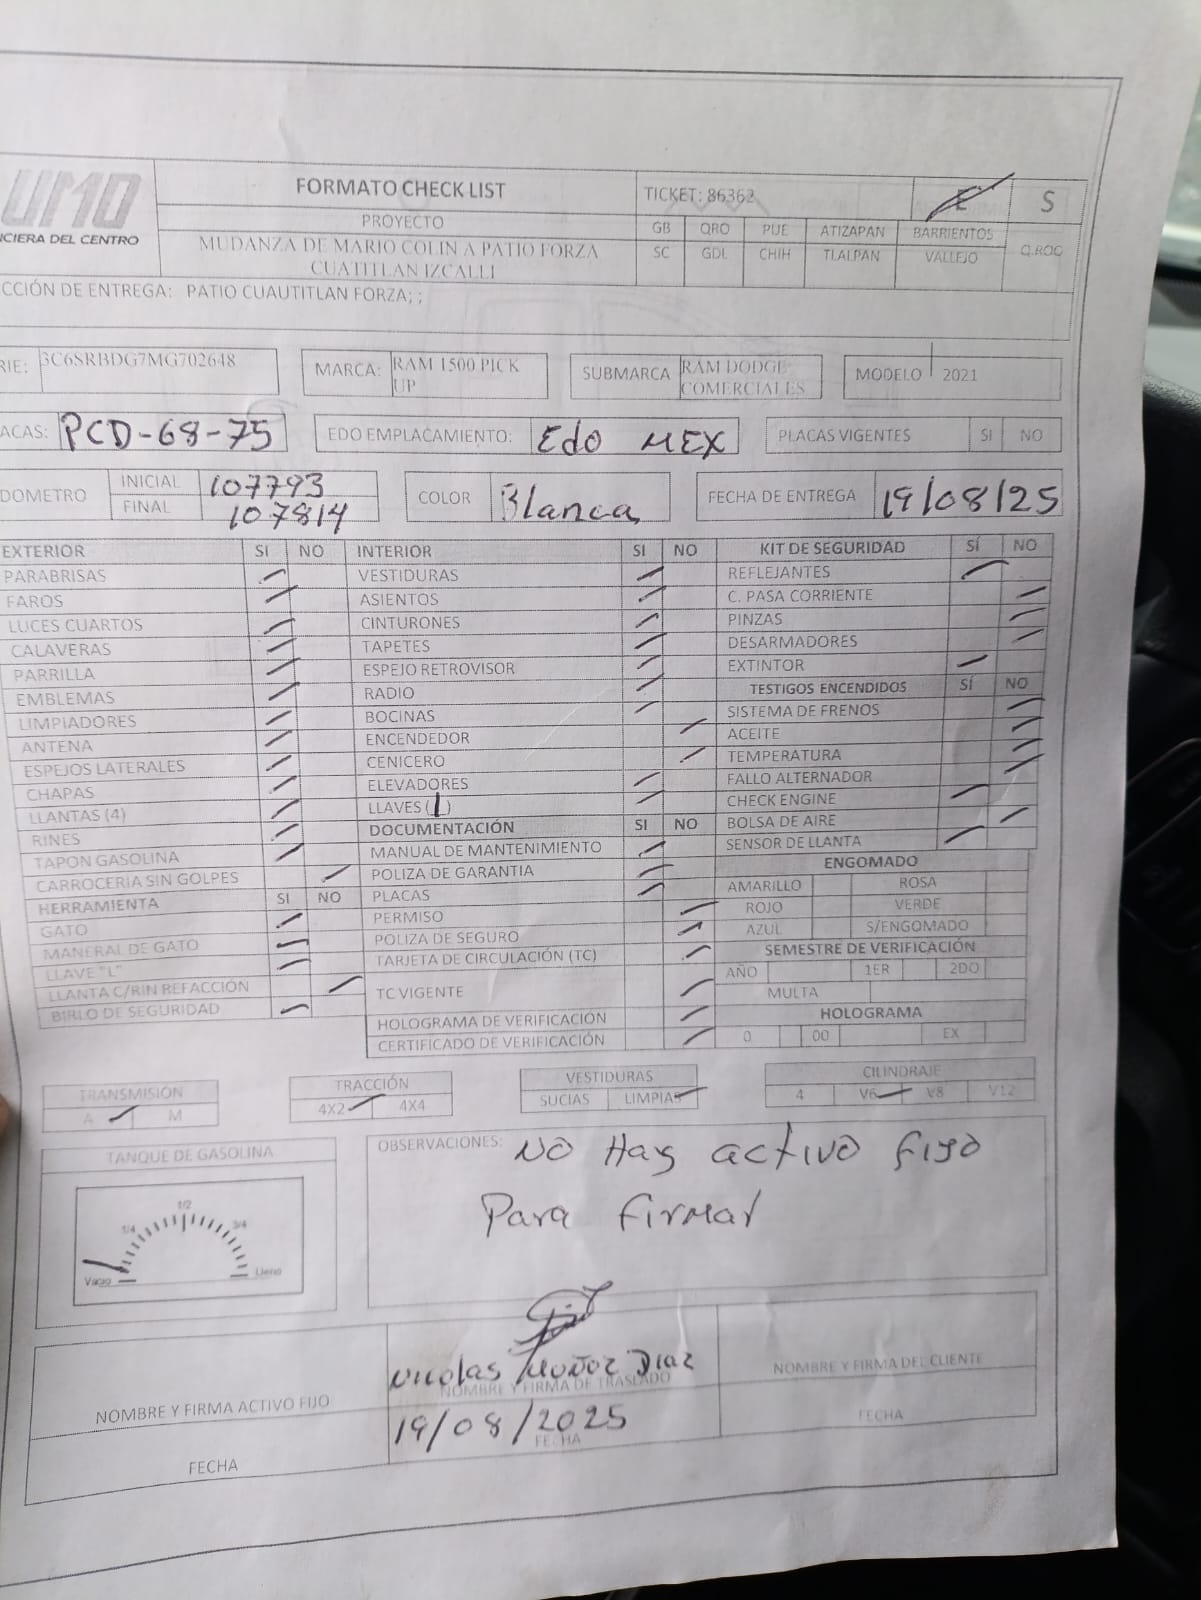 UMO
NCIERA DEL CENTRO
FORMATO CHECK LIST
PROYECTO
MUDANZA DE MARIO COLIN A PATIO FORZA
CUATITLAN IZCALLI
TICKET: 86362 E S
GB QRO PUE ATIZAPAN BARRIENTOS
SC GDL CHIH TLALPAN VALLEJO Q.ROO
CCIÓN DE ENTREGA: PATIO CUAUTITLAN FORZA; ;
RIE: 3C6SRBDG7MG702648
MARCA: RAM 1500 PICK
UP
SUBMARCA RAM DODGE
COMERCIALES
MODELO 2021
ACAS: PCD-68-75 EDO EMPLACAMIENTO: Edo MEX PLACAS VIGENTES SI NO
DOMETRO INICIAL 107793
FINAL 107814
COLOR Blanca
FECHA DE ENTREGA 19/08/25
EXTERIOR SI NO
PARABRISAS
FAROS
LUCES CUARTOS
CALAVERAS
PARRILLA
EMBLEMAS
LIMPIADORES
ANTENA
ESPEJOS LATERALES
CHAPAS
LLANTAS (4)
RINES
TAPON GASOLINA
CARROCERIA SIN GOLPES
HERRAMIENTA SI NO
GATO
MANERAL DE GATO
LLAVE "L"
LLANTA C/RIN REFACCIÓN
BIRLO DE SEGURIDAD
INTERIOR SI NO
VESTIDURAS
ASIENTOS
CINTURONES
TAPETES
ESPEJO RETROVISOR
RADIO
BOCINAS
ENCENDEDOR
CENICERO
ELEVADORES
LLAVES (1)
DOCUMENTACIÓN SI NO
MANUAL DE MANTENIMIENTO
POLIZA DE GARANTIA
PLACAS
PERMISO
POLIZA DE SEGURO
TARJETA DE CIRCULACIÓN (TC)
TC VIGENTE
HOLOGRAMA DE VERIFICACIÓN
CERTIFICADO DE VERIFICACIÓN
KIT DE SEGURIDAD SÍ NO
REFLEJANTES
C. PASA CORRIENTE
PINZAS
DESARMADORES
EXTINTOR
TESTIGOS ENCENDIDOS SÍ NO
SISTEMA DE FRENOS
ACEITE
TEMPERATURA
FALLO ALTERNADOR
CHECK ENGINE
BOLSA DE AIRE
SENSOR DE LLANTA
ENGOMADO
AMARILLO ROSA
ROJO VERDE
AZUL S/ENGOMADO
SEMESTRE DE VERIFICACIÓN
AÑO 1ER 2DO
MULTA
HOLOGRAMA
0 00 EX
TRANSMISIÓN
A M
TRACCIÓN
4X2 4X4
VESTIDURAS
SUCIAS LIMPIAS
CILINDRAJE
4 V6 V8 V12
TANQUE DE GASOLINA
1/2
1/4 3/4
Vacio Lleno
OBSERVACIONES: No Hay activo fijo
Para firmar
NOMBRE Y FIRMA ACTIVO FIJO
FECHA
Nicolas Muñoz Diaz
NOMBRE Y FIRMA DE TRASLADO
19/08/2025
FECHA
NOMBRE Y FIRMA DEL CLIENTE
FECHA